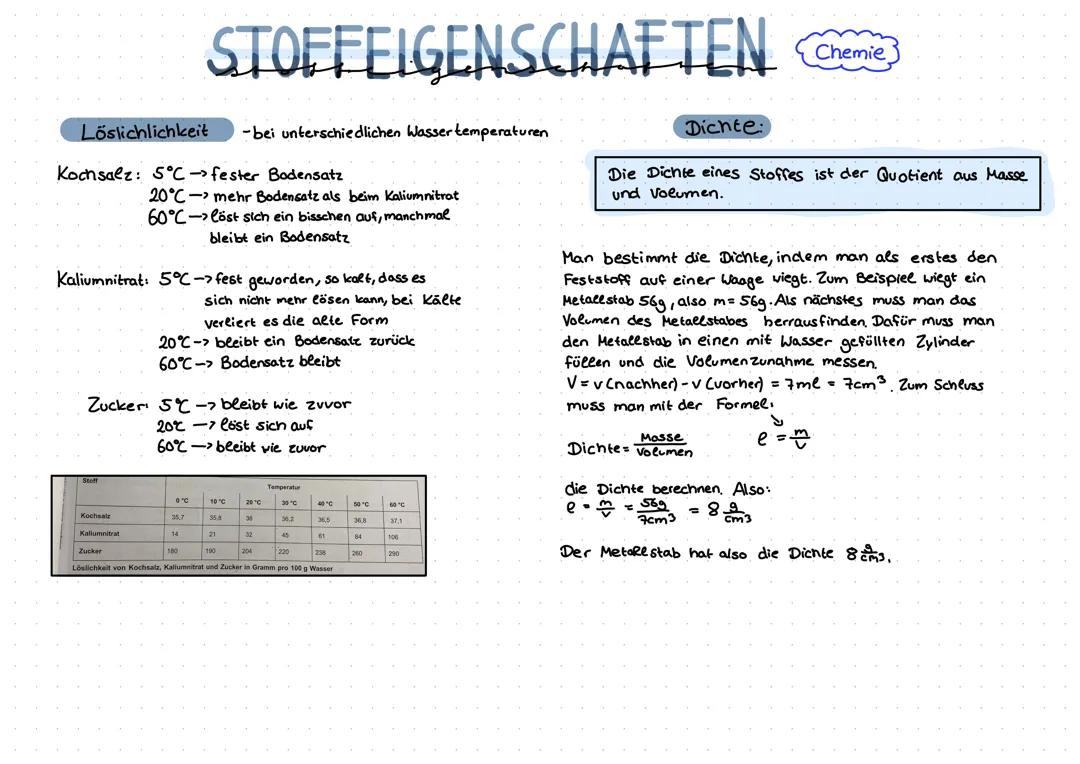 STOFFEIGENSCHAFTEN
Stoffeigenschaften
Chemie
Löslichlichkeit - bei unterschiedlichen Wassertemperaturen
Kochsalz: 5°C -> fester Bodensatz
20°C -> mehr Bodensatz als beim Kaliumnitrat
60°C -> löst sich ein bisschen auf, manchmal
bleibt ein Bodensatz
Kaliumnitrat: 5°C -> fest geworden, so kalt, dass es
sich nicht mehr lösen kann, bei Kälte
verliert es die alte Form
20°C -> bleibt ein Bodensatz zurück
60°C -> Bodensatz bleibt
Zucker: 5°C -> bleibt wie zuvor
20°C -> löst sich auf
60°C -> bleibt wie zuvor
Stoff Temperatur
0 °C 10 °C 20 °C 30 °C 40 °C 50 °C 60 °C
Kochsalz 35,7 35,8 36 36,2 36,5 36,8 37,1
Kaliumnitrat 14 21 32 45 61 84 106
Zucker 180 190 204 220 238 260 290
Löslichkeit von Kochsalz, Kaliumnitrat und Zucker in Gramm pro 100 g Wasser
Dichte:
Die Dichte eines Stoffes ist der Quotient aus Masse
und Volumen.
Man bestimmt die Dichte, indem man als erstes den
Feststoff auf einer Waage wiegt. Zum Beispiel wiegt ein
Metallstab 56g, also m= 56g. Als nächstes muss man das
Volumen des Metallstabes herrausfinden. Dafür muss man
den Metallstab in einen mit Wasser gefüllten Zylinder
füllen und die Volumenzunahme messen.
V = v (nachher) - v (vorher) = 7ml = 7cm³. Zum Schluss
muss man mit der Formel:
Dichte = Masse/Volumen ρ = m/v
die Dichte berechnen. Also:
ρ = m/v = 56g/7cm³ = 8 g/cm³
Der Metallstab hat also die Dichte 8 g/cm³.